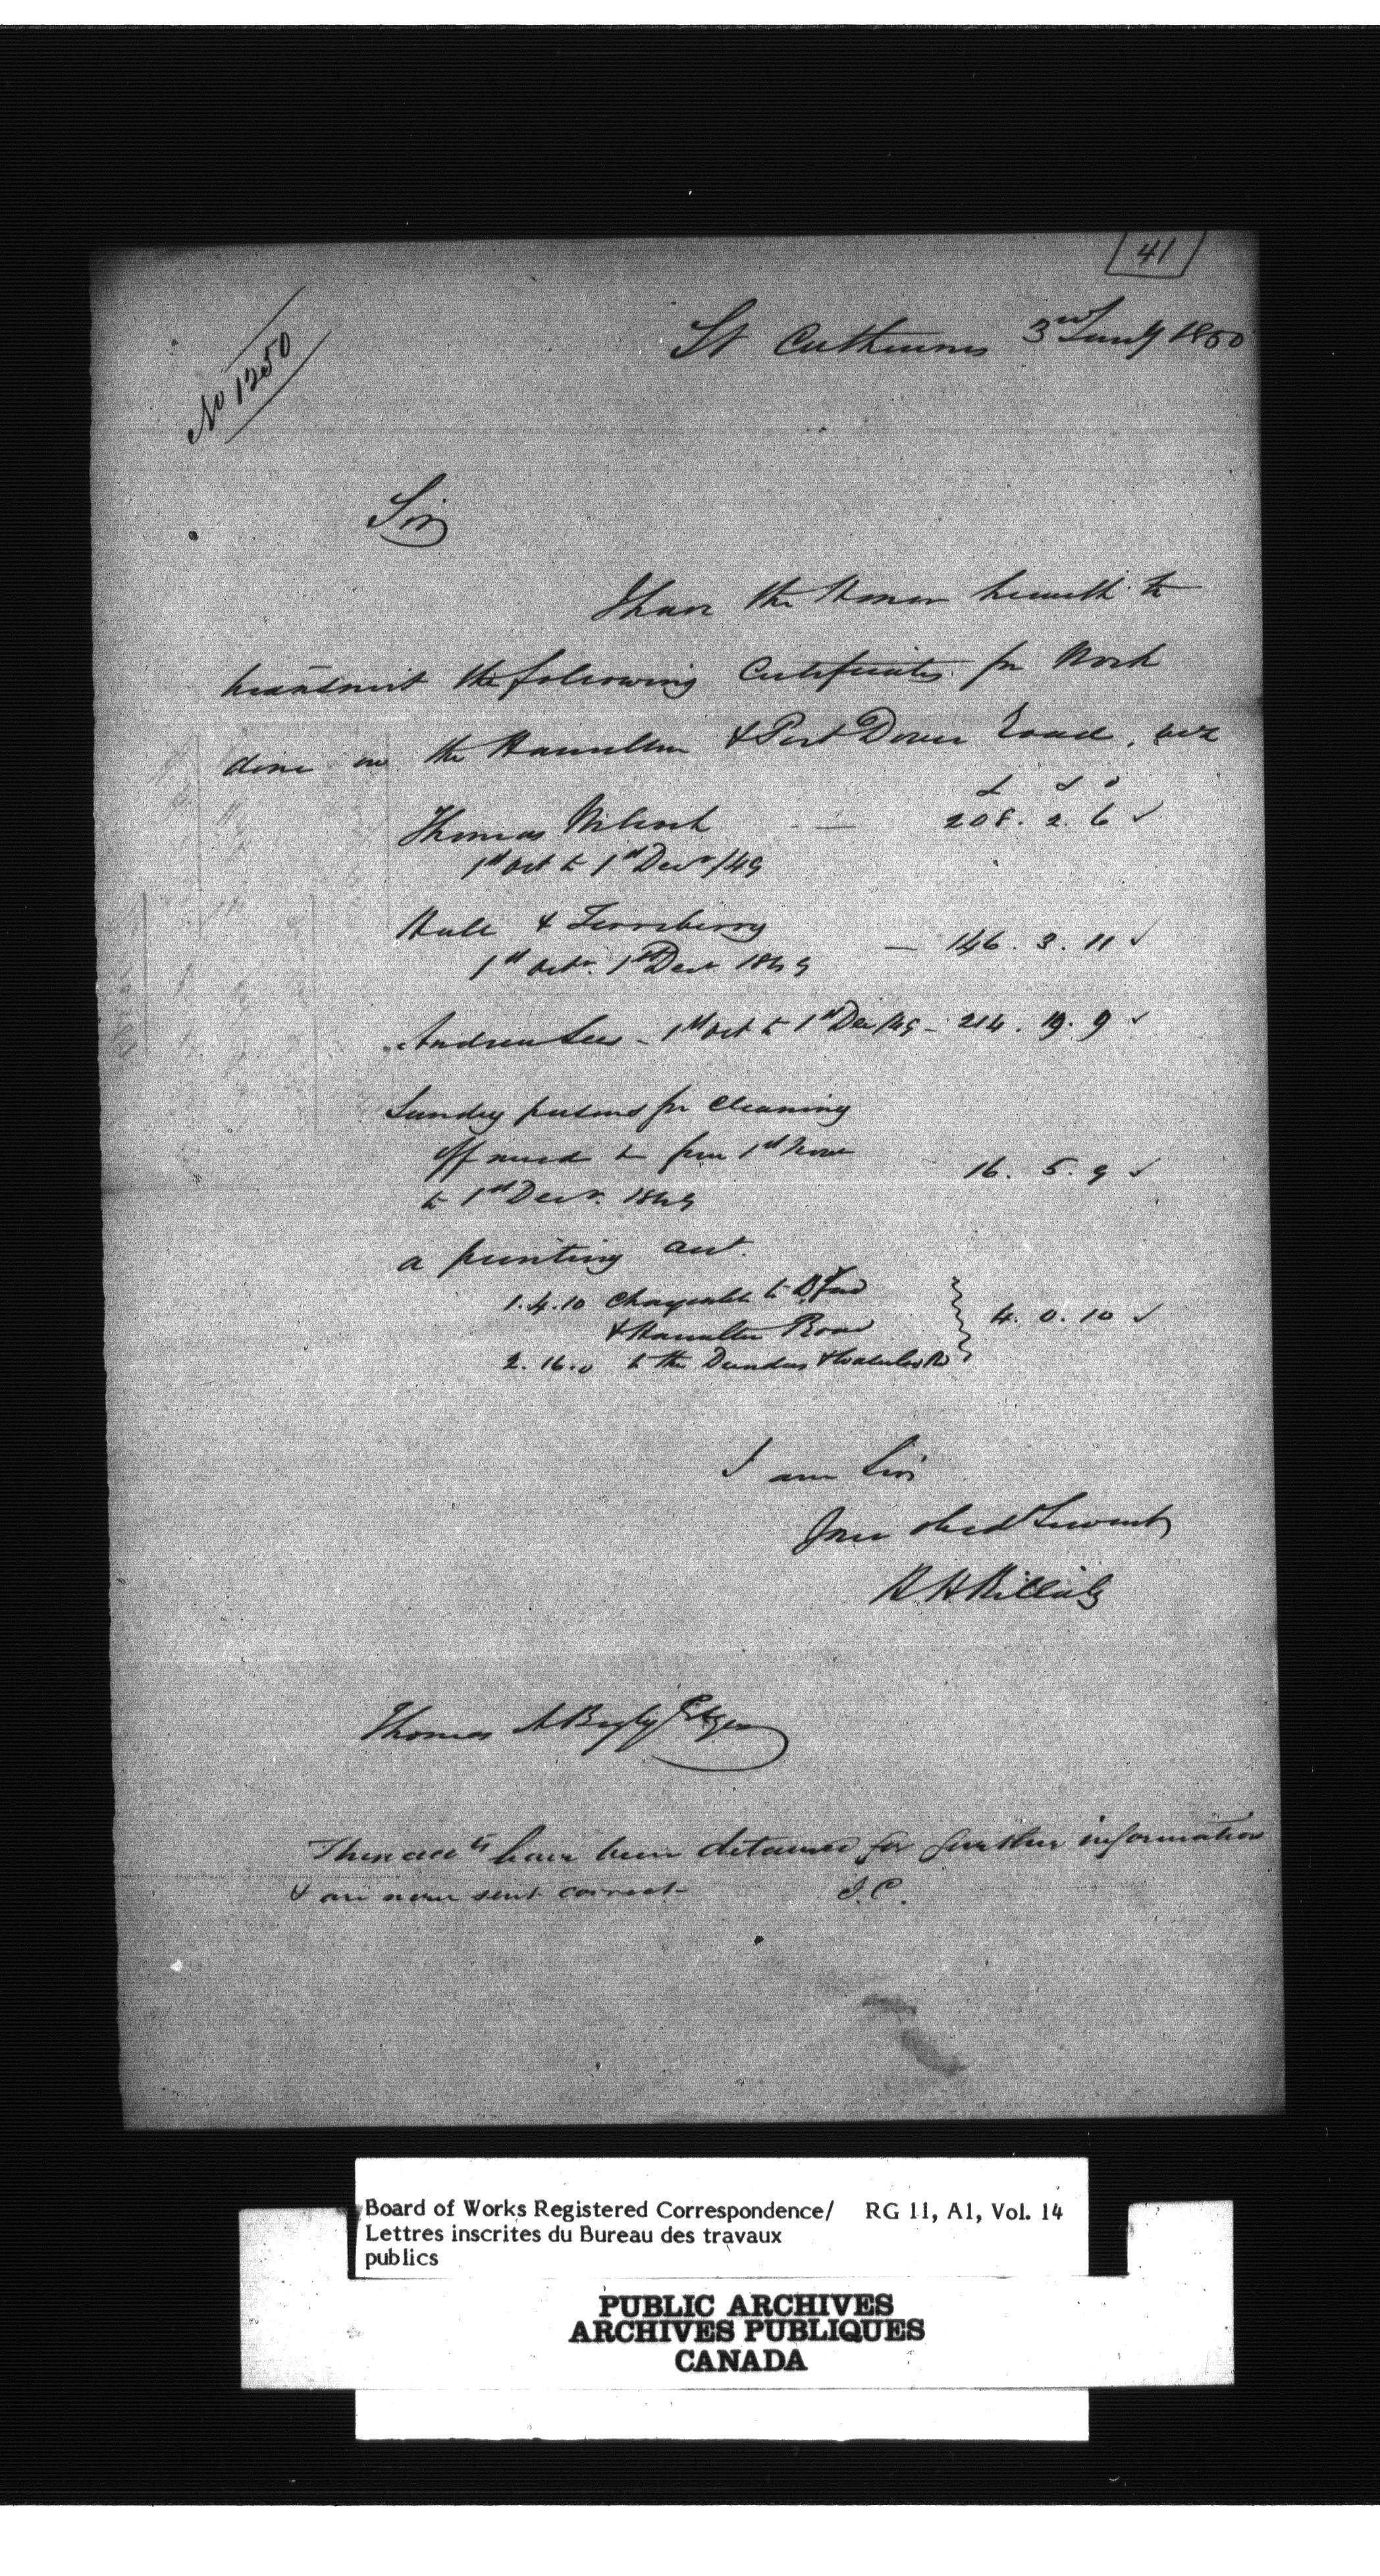 41
No 1250
St Catherines 3rd Jany 1850
Sir
I have the Honor herewith to
transmit the following Certificates for Work
done on the Hamilton & Port Dover Road, viz
£ s d
Thomas 208. 2. 6
1st Oct to 1st Decr /49
Hall & Terrebery — 146. 3. 11
1st Octr. 1st Decr 1849
Andrew Lees - 1st Oct to 1st Dec /49 - 214. 19. 9
Sundry persons for cleaning
off mud from 1st Novr
to 1st Decr. 1849 16. 5. 9
a printing act.
1. 4. 10 Chargeable to Bford
& Hamilton Road 4. 0. 10
2. 16. 0 to the Dundas & Waterloo Rd
I am Sir
Your obed Servant
H H Killaly
Thomas A Begly Esqr
These accts have been detained for further information
& are now sent correct J. C.
Board of Works Registered Correspondence/ RG 11, A1, Vol. 14
Lettres inscrites du Bureau des travaux
publics
PUBLIC ARCHIVES
ARCHIVES PUBLIQUES
CANADA